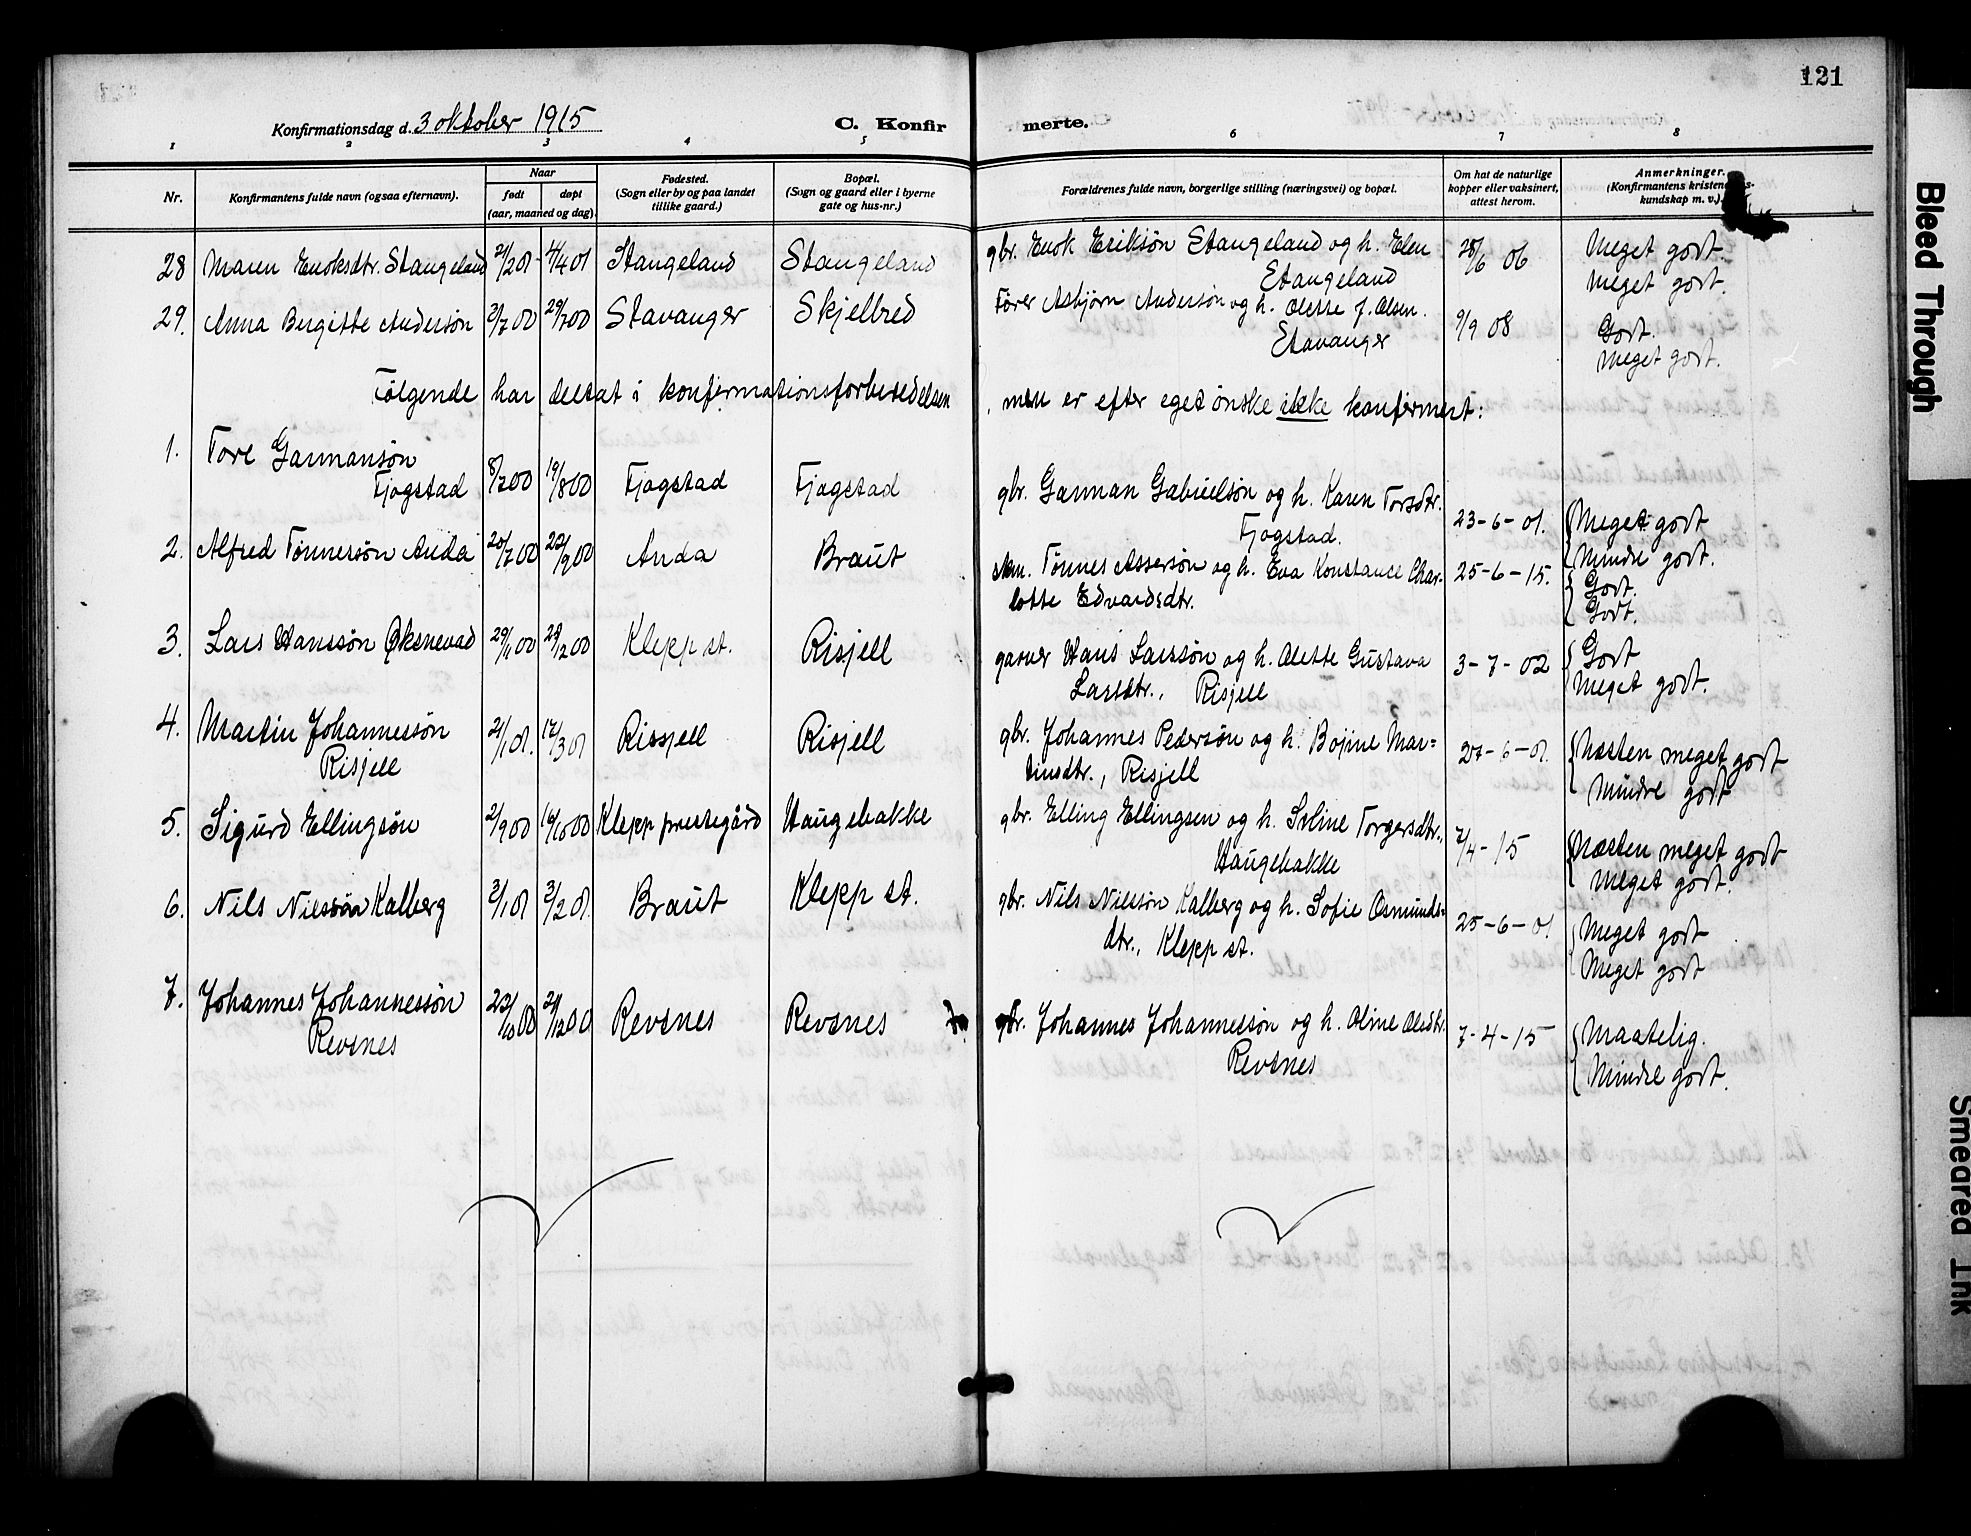 121
Konfirmationsdag d. 3 oktober 1915
C. Konfirmerte.
1 2 3 4 5 6 7 8
Nr.
Konfirmantens fulde navn (ogsaa efternavn).
Naar
født døpt
(aar, maaned og dag).
Fødested.
(Sogn eller by og paa landet
tillike gaard.)
Bopæl.
(Sogn og gaard eller i byerne
gate og hus-nr.)
Forældrenes fulde navn, borgerlige stilling (næringsvei) og bopæl.
Om hat de naturlige
kopper eller vaksinert,
attest herom.
Anmerkninger.
(Konfirmantens kristendoms-
kundskap m. v.)
28 Maren Enoksdtr. Stangeland 21/2 01 4/4 01 Stangeland Stangeland gbr. Enok Eriksøn Stangeland og h. Elen 28/6 06 Meget godt.
Stangeland Meget godt.
29. Anna Birgitte Andersøn 3/7 00 29/7 00 Stavanger Skjelbred Fører Asbjørn Andersøn og h. Olette f. Olsen. 9/9 08 Godt.
Stavanger Meget godt.
Følgende har deltat i konfirmationsforberedelsen, men er efter eget ønske ikke konfirmert:
1. Tore Garmansøn
Fjogstad 8/7 00 19/8 00 Fjogstad Fjogstad gbr. Garman Gabrielsøn og h. Karen Torsdtr. 23-6-01. Meget godt
Fjogstad. Mindre godt.
2. Alfred Tønnersøn Anda 20/7 00 22/9 00 Anda Braut Tønnes Assersøn og h. Eva Konstance Char- 25-6-15. Godt.
lotte Edvardsdtr. Godt.
3. Lars Hanssøn Øksnevad 29/11 00 28/12 00 Klepp st. Risjell garver Hans Larssøn og h. Olette Gustava 3-7-02 Godt
Larsdtr., Risjell Meget godt.
4. Martin Johannessøn
Risjell 21/1 01. 17/3 01 Rissjell Risjell gbr. Johannes Pedersøn og h. Bojine Mar= 27-6-01. Næsten meget godt
tinsdtr., Risjell Mindre godt
5. Sigurd Ellingsøn 2/9 00 16/10 00 Klepp prestegård Haugebakke gbr. Elling Ellingsen og h. Seline Torgersdtr., 7/4-15 Næsten meget godt
Haugebakke Meget godt.
6. Nils Nilssøn Kalberg 3/1 01 3/2 01. Braut Klepp st. gbr. Nils Nilssøn Kalberg og h. Sofie Osmunds= 25-6-01 Meget godt
dtr., Klepp st. Meget godt
7. Johannes Johannessøn
Revsnes 23/10 00 26/12 00 Revsnes Revsnes gbr. Johannes Johannessøn og h. Oline Olsdtr. 7-4-15 Maatelig.
Revsnes Mindre godt.
Bleed Through
Smeared Ink